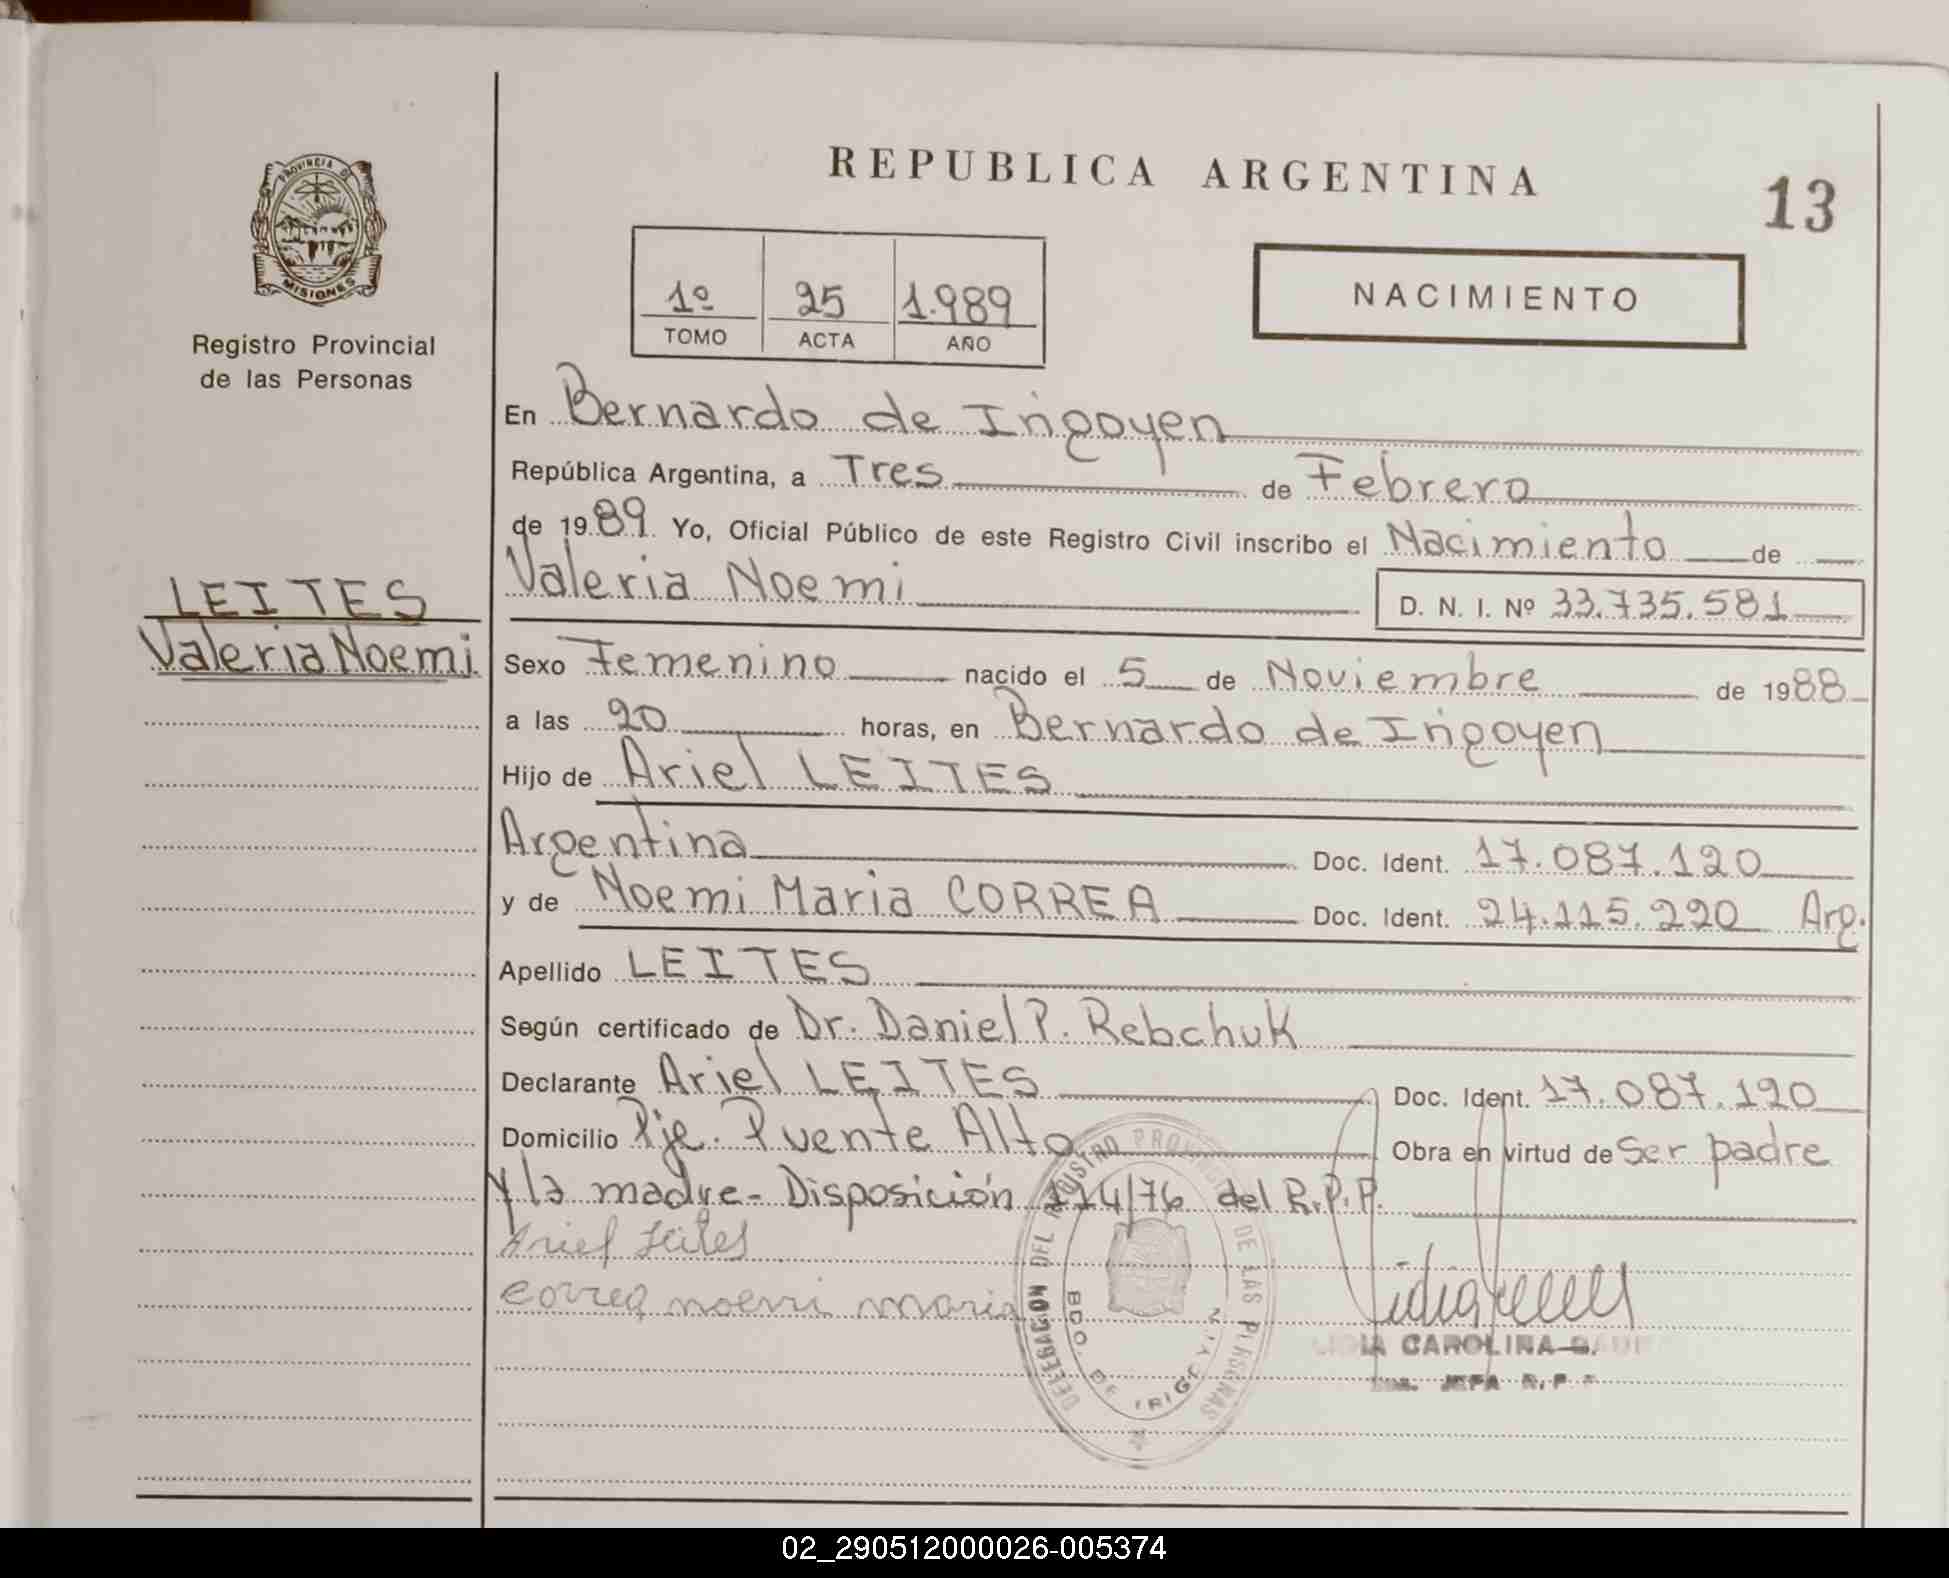 PROVINCIA DE
MISIONES
Registro Provincial
de las Personas
LEITES
Valeria Noemi
REPUBLICA ARGENTINA
13
1º 25 1.989
TOMO ACTA AÑO
NACIMIENTO
En Bernardo de Irigoyen
República Argentina, a Tres de Febrero
de 1989 Yo, Oficial Público de este Registro Civil inscribo el Nacimiento de
Valeria Noemi D. N. I. Nº 33.735.581
Sexo Femenino nacido el 5 de Noviembre de 1988
a las 20 horas, en Bernardo de Irigoyen
Hijo de Ariel LEITES
Argentina Doc. Ident. 17.087.120
y de Noemi Maria CORREA Doc. Ident. 24.115.220 Arg.
Apellido LEITES
Según certificado de Dr. Daniel P. Rebchuk
Declarante Ariel LEITES Doc. Ident. 17.087.120
Domicilio Pje. Puente Alto Obra en virtud de Ser padre
y la madre - Disposición 114/76 del R.P.P.
Ariel Leites
Correa noemi maria
DELEGACION DEL REGISTRO PROVINCIAL DE LAS PERSONAS
BDO. DE IRIGOYEN
LIDIA CAROLINA
JEFA R.P.
02_290512000026-005374